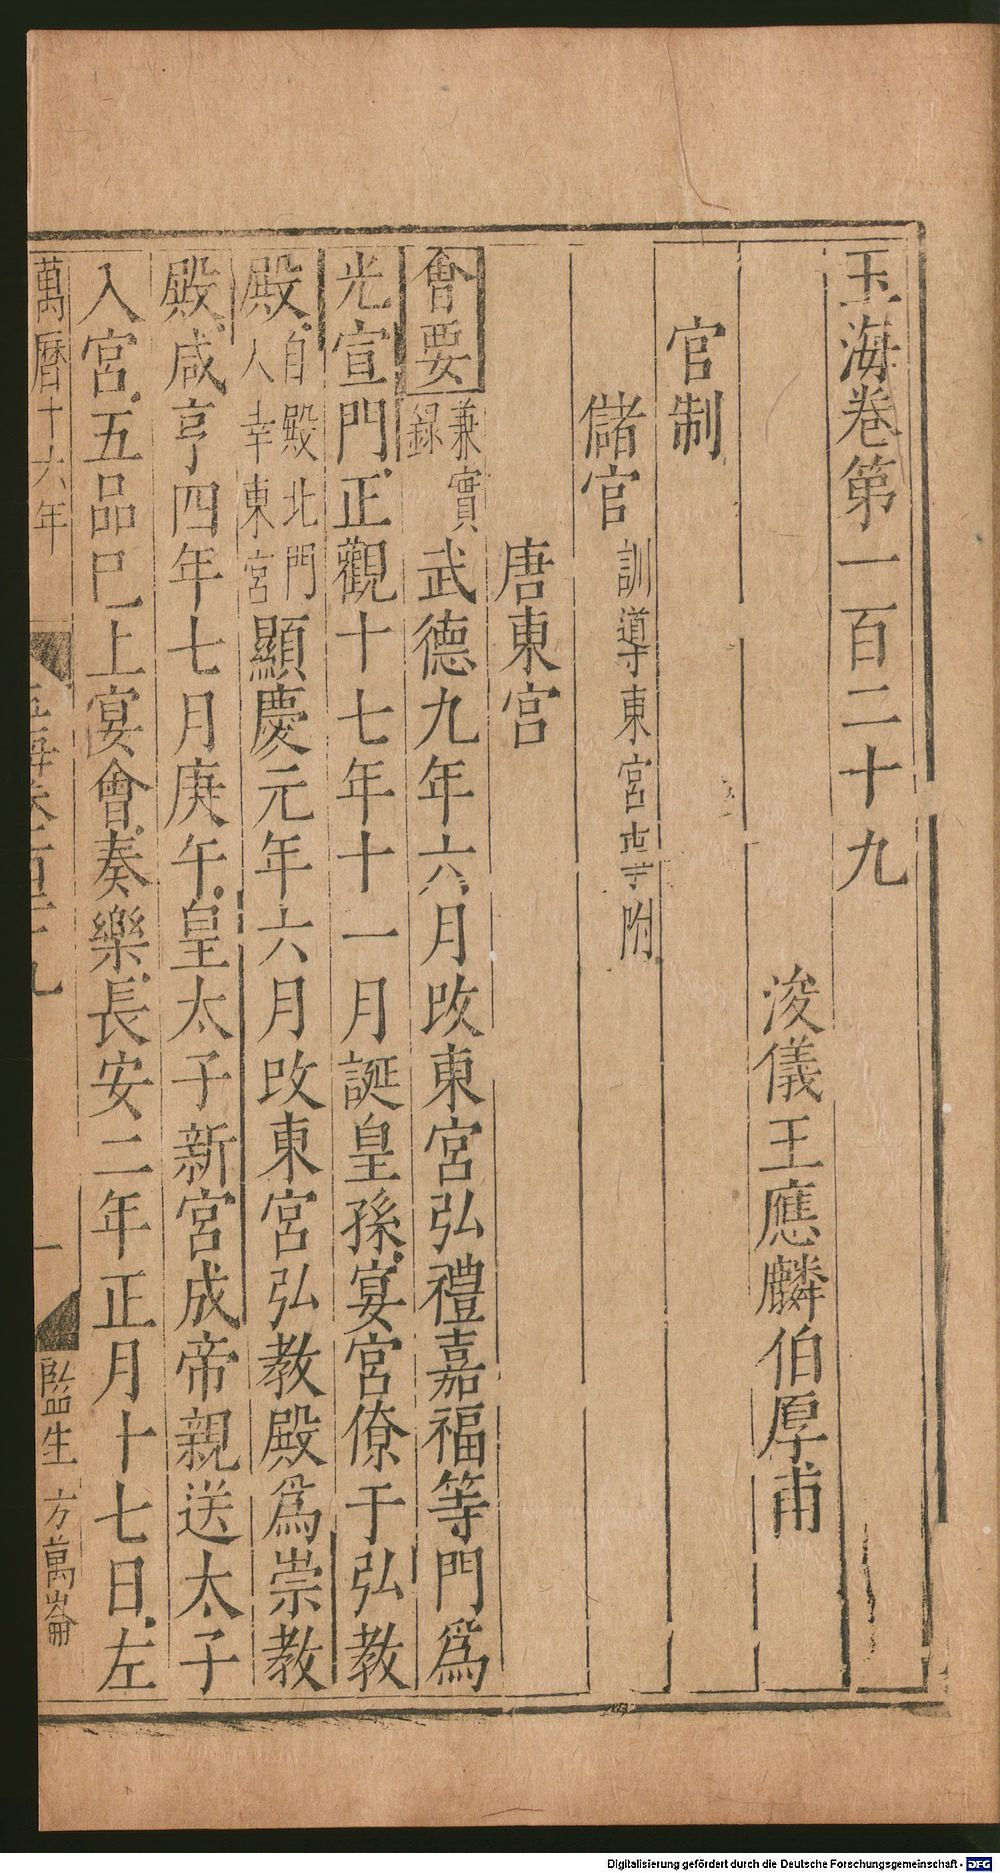 玉海卷第一百二十九
浚儀王應麟伯厚甫
官制
儲官 訓導東宮 附
唐東宮
會要 兼實錄 武德九年六月改東宮弘禮嘉福等門為
光宣門正觀十七年十一月誕皇孫宴宮僚于弘教
殿自殿北門人幸東宮顯慶元年六月改東宮弘教殿為崇教
殿咸亨四年七月庚午皇太子新宮成帝親送太子
入宮五品已上宴會奏樂長安二年正月十七日左
萬曆十六年
玉海卷百二十九
一
監生 方萬崙
Digitalisierung gefördert durch die Deutsche Forschungsgemeinschaft - DFG